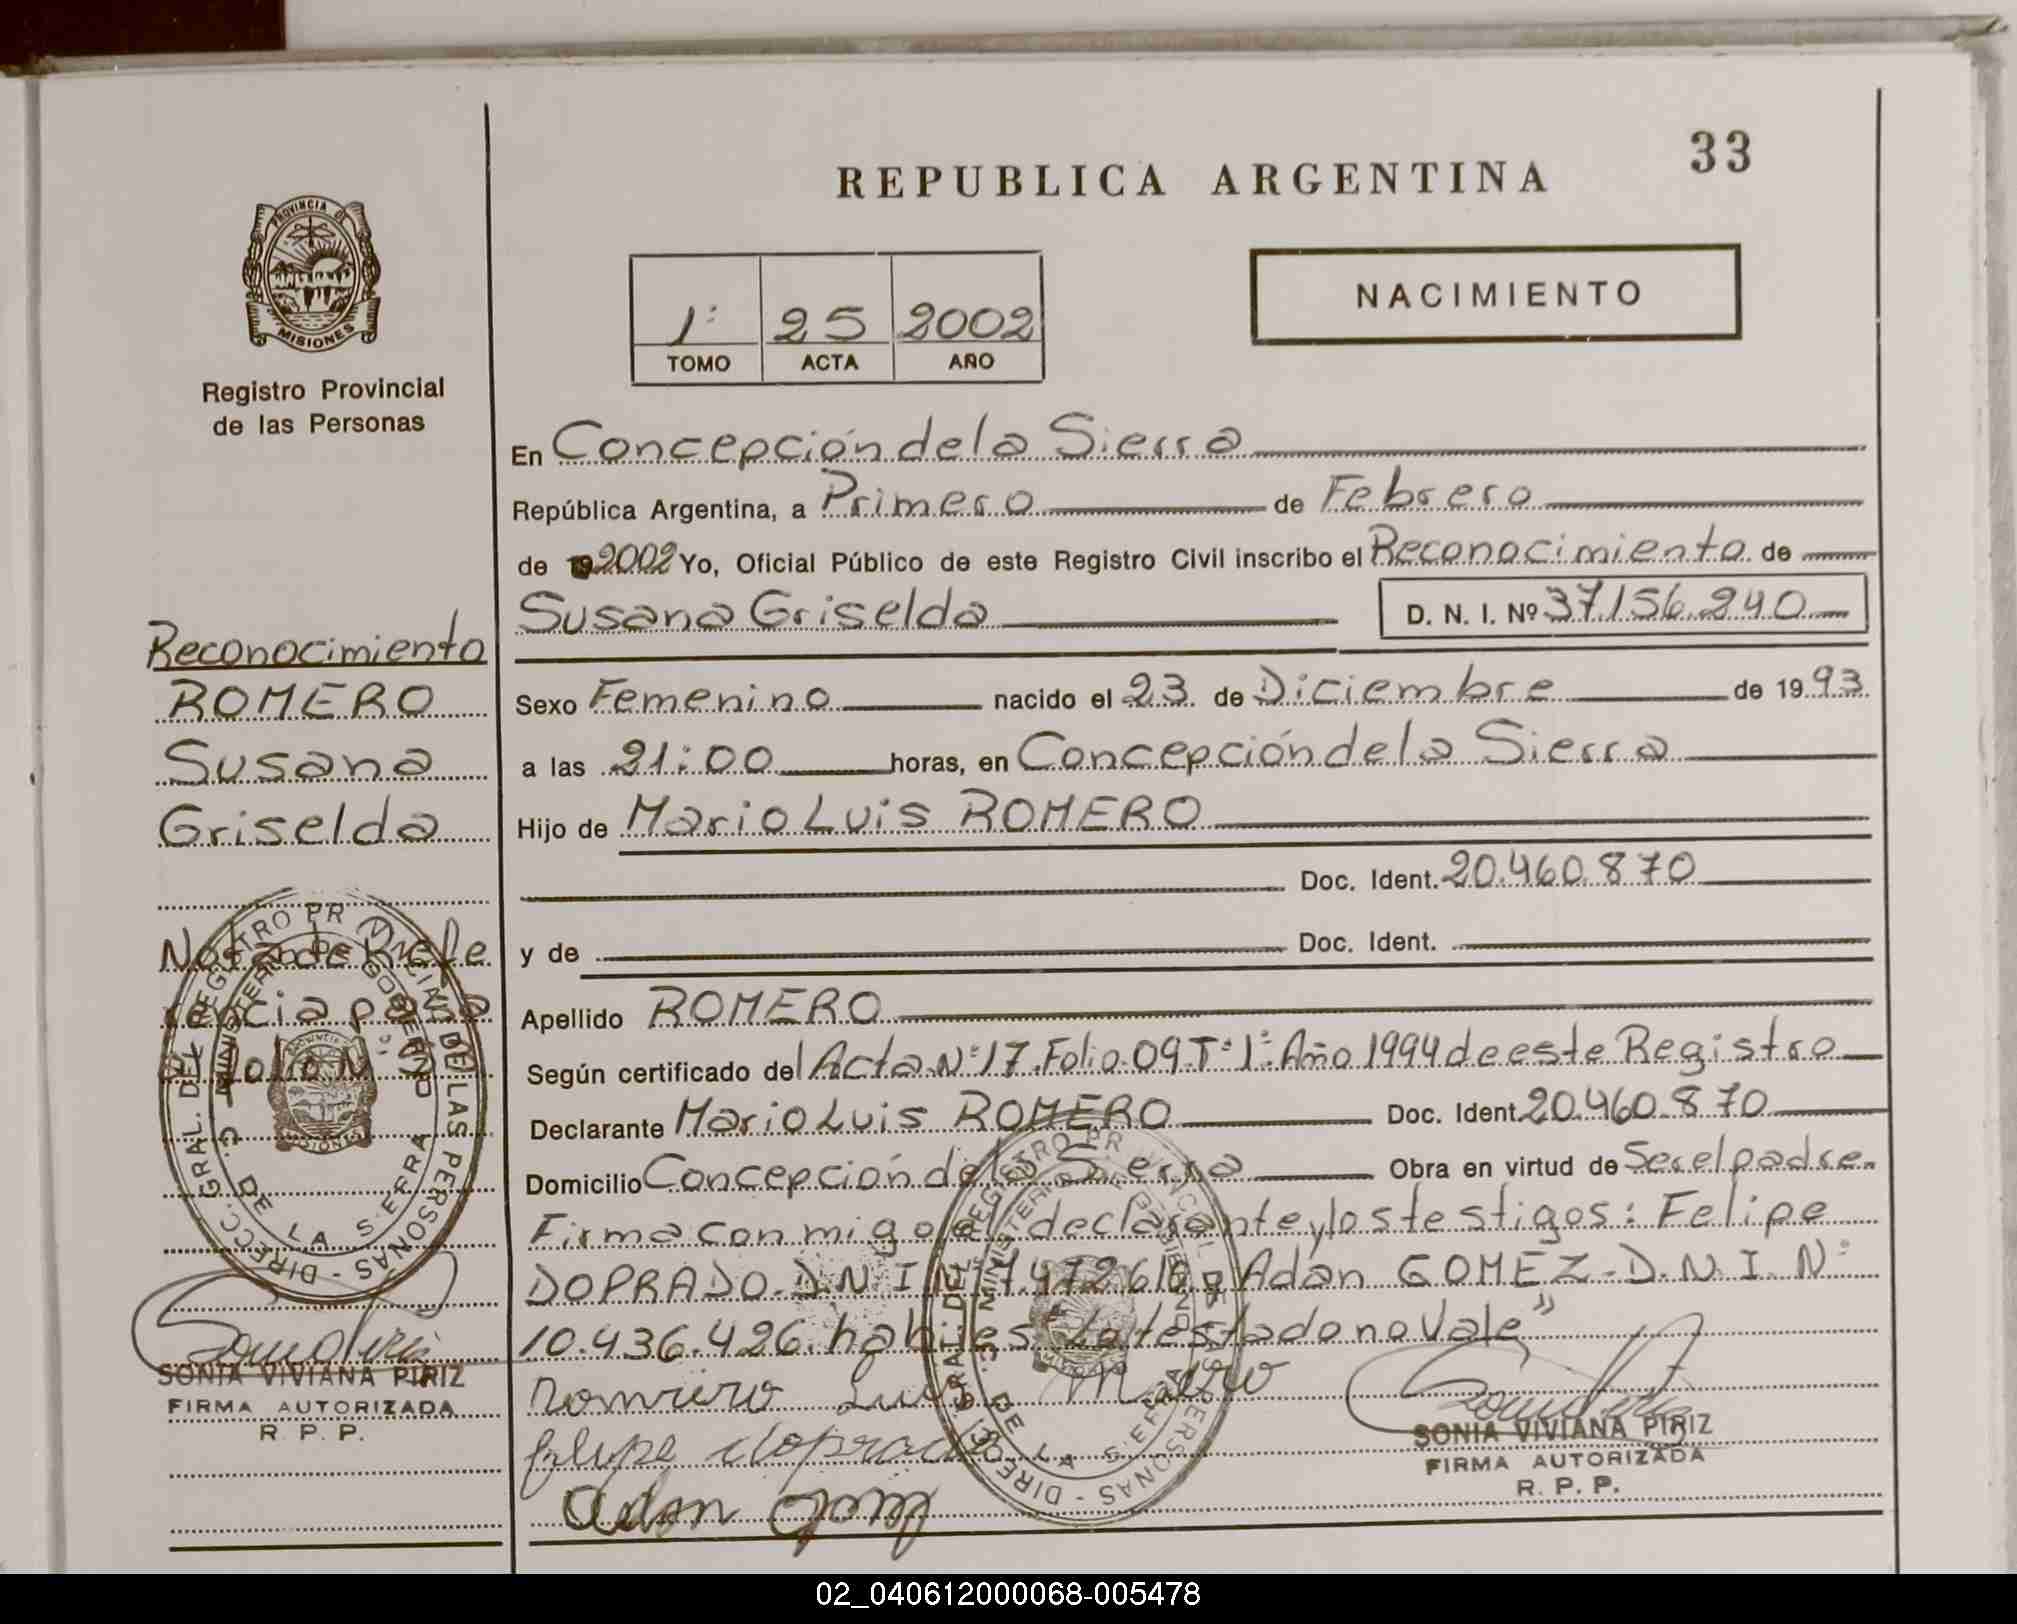 33
REPUBLICA ARGENTINA
PROVINCIA DE
MISIONES
Registro Provincial
de las Personas
NACIMIENTO
1º 25 2002
TOMO ACTA AÑO
En Concepción de la Sierra
República Argentina, a Primero de Febrero
de 2002 Yo, Oficial Público de este Registro Civil inscribo el Reconocimiento de
Susana Griselda D. N. I. Nº 37.156.240
Sexo Femenino nacido el 23 de Diciembre de 1993
a las 21:00 horas, en Concepción de la Sierra
Hijo de Mario Luis ROMERO
Doc. Ident. 20.460.870
y de Doc. Ident.
Apellido ROMERO
Según certificado del Acta Nº 17. Folio 09. Tº 1º. Año 1994 de este Registro
Declarante Mario Luis ROMERO Doc. Ident. 20.460.870
Domicilio Concepción de la Sierra Obra en virtud de Ser el padre.
Firma con migo el declarante y los testigos: Felipe
DOPRADO. D.N.I. Adan GOMEZ - D.N.I. Nº
10.436.426. habiles "Lo testado no Vale"
Romero Luis Mario
felipe doprado
Adan Gomez
SONIA VIVIANA PIRIZ
FIRMA AUTORIZADA
R. P. P.
Reconocimiento
ROMERO
Susana
Griselda
Nota de Refe
rencia pasa
al folio Nº
DIRECC. GRAL. DEL REGISTRO PROVINCIAL DE LAS PERSONAS
MINISTERIO DE GOBIERNO
C. DE LA SIERRA
SONIA VIVIANA PIRIZ
FIRMA AUTORIZADA
R. P. P.
DIRECC. GRAL. DEL REGISTRO PROVINCIAL DE LAS PERSONAS
MINISTERIO DE GOBIERNO
C. DE LA SIERRA
02_040612000068-005478